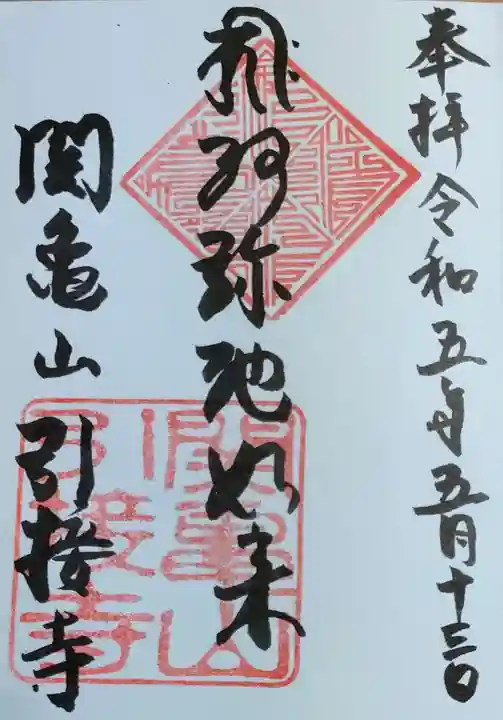 奉拝令和五年五月十三日
阿弥陀如来
関亀山引接寺
関亀山
引接寺